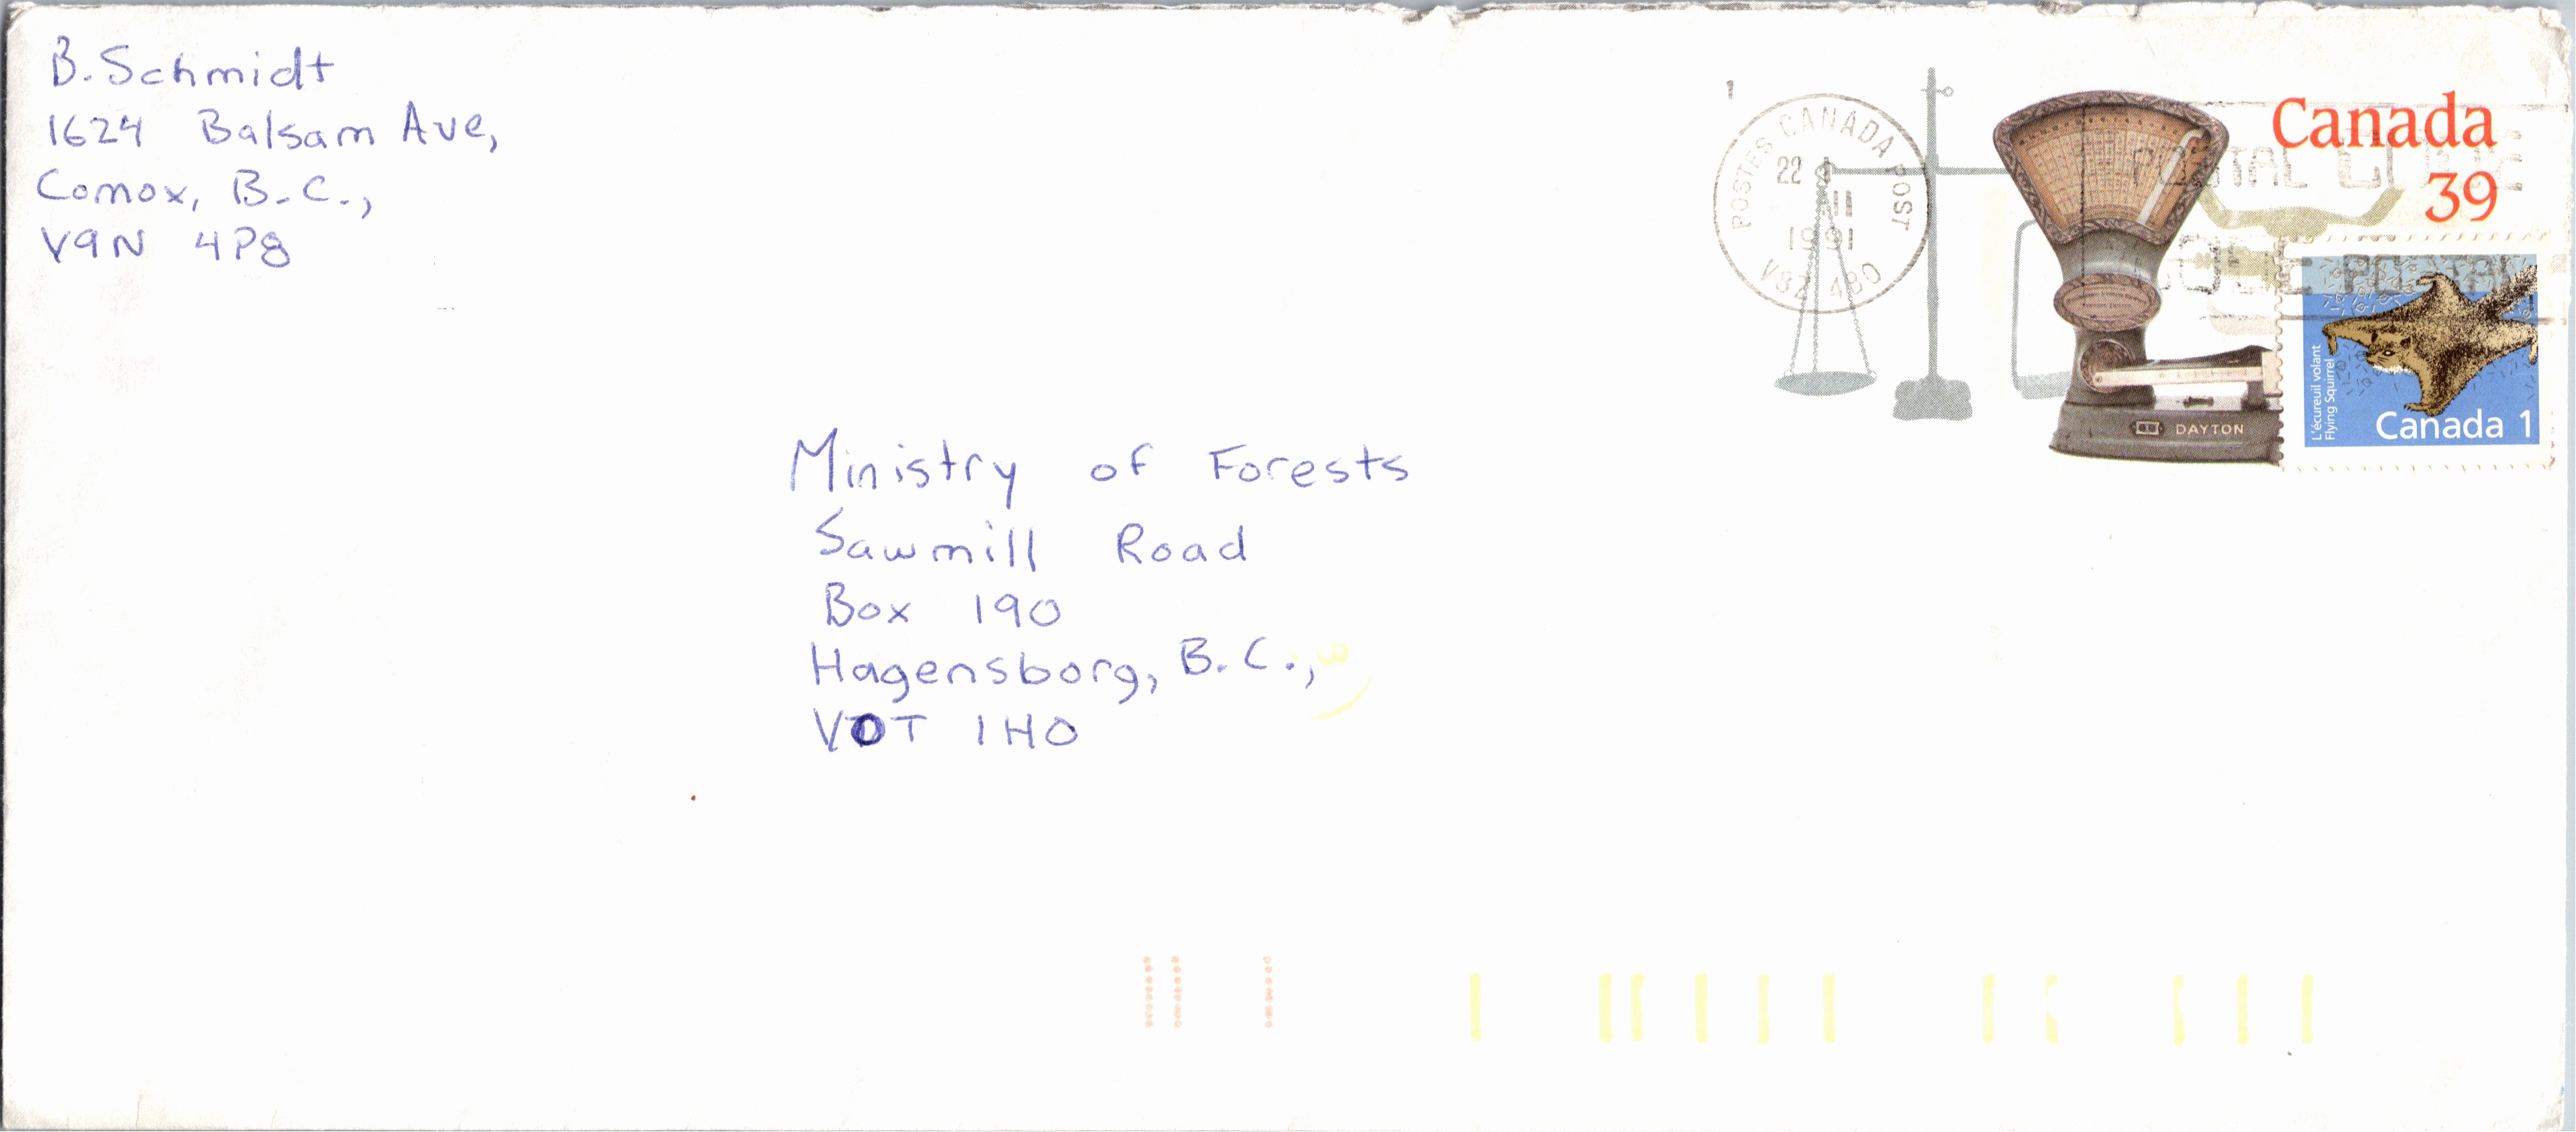 B. Schmidt
1624 Balsam Ave,
Comox, B.C.,
V9N 4P8
1
POSTES CANADA POST
22
11
1991
V8Z 4B0
Canada
39
POSTAL CODE
CODE POSTAL
DAYTON
L'écureuil volant
Flying Squirrel
Canada 1
Ministry of Forests
Sawmill Road
Box 190
Hagensborg, B.C.,
V0T 1H0